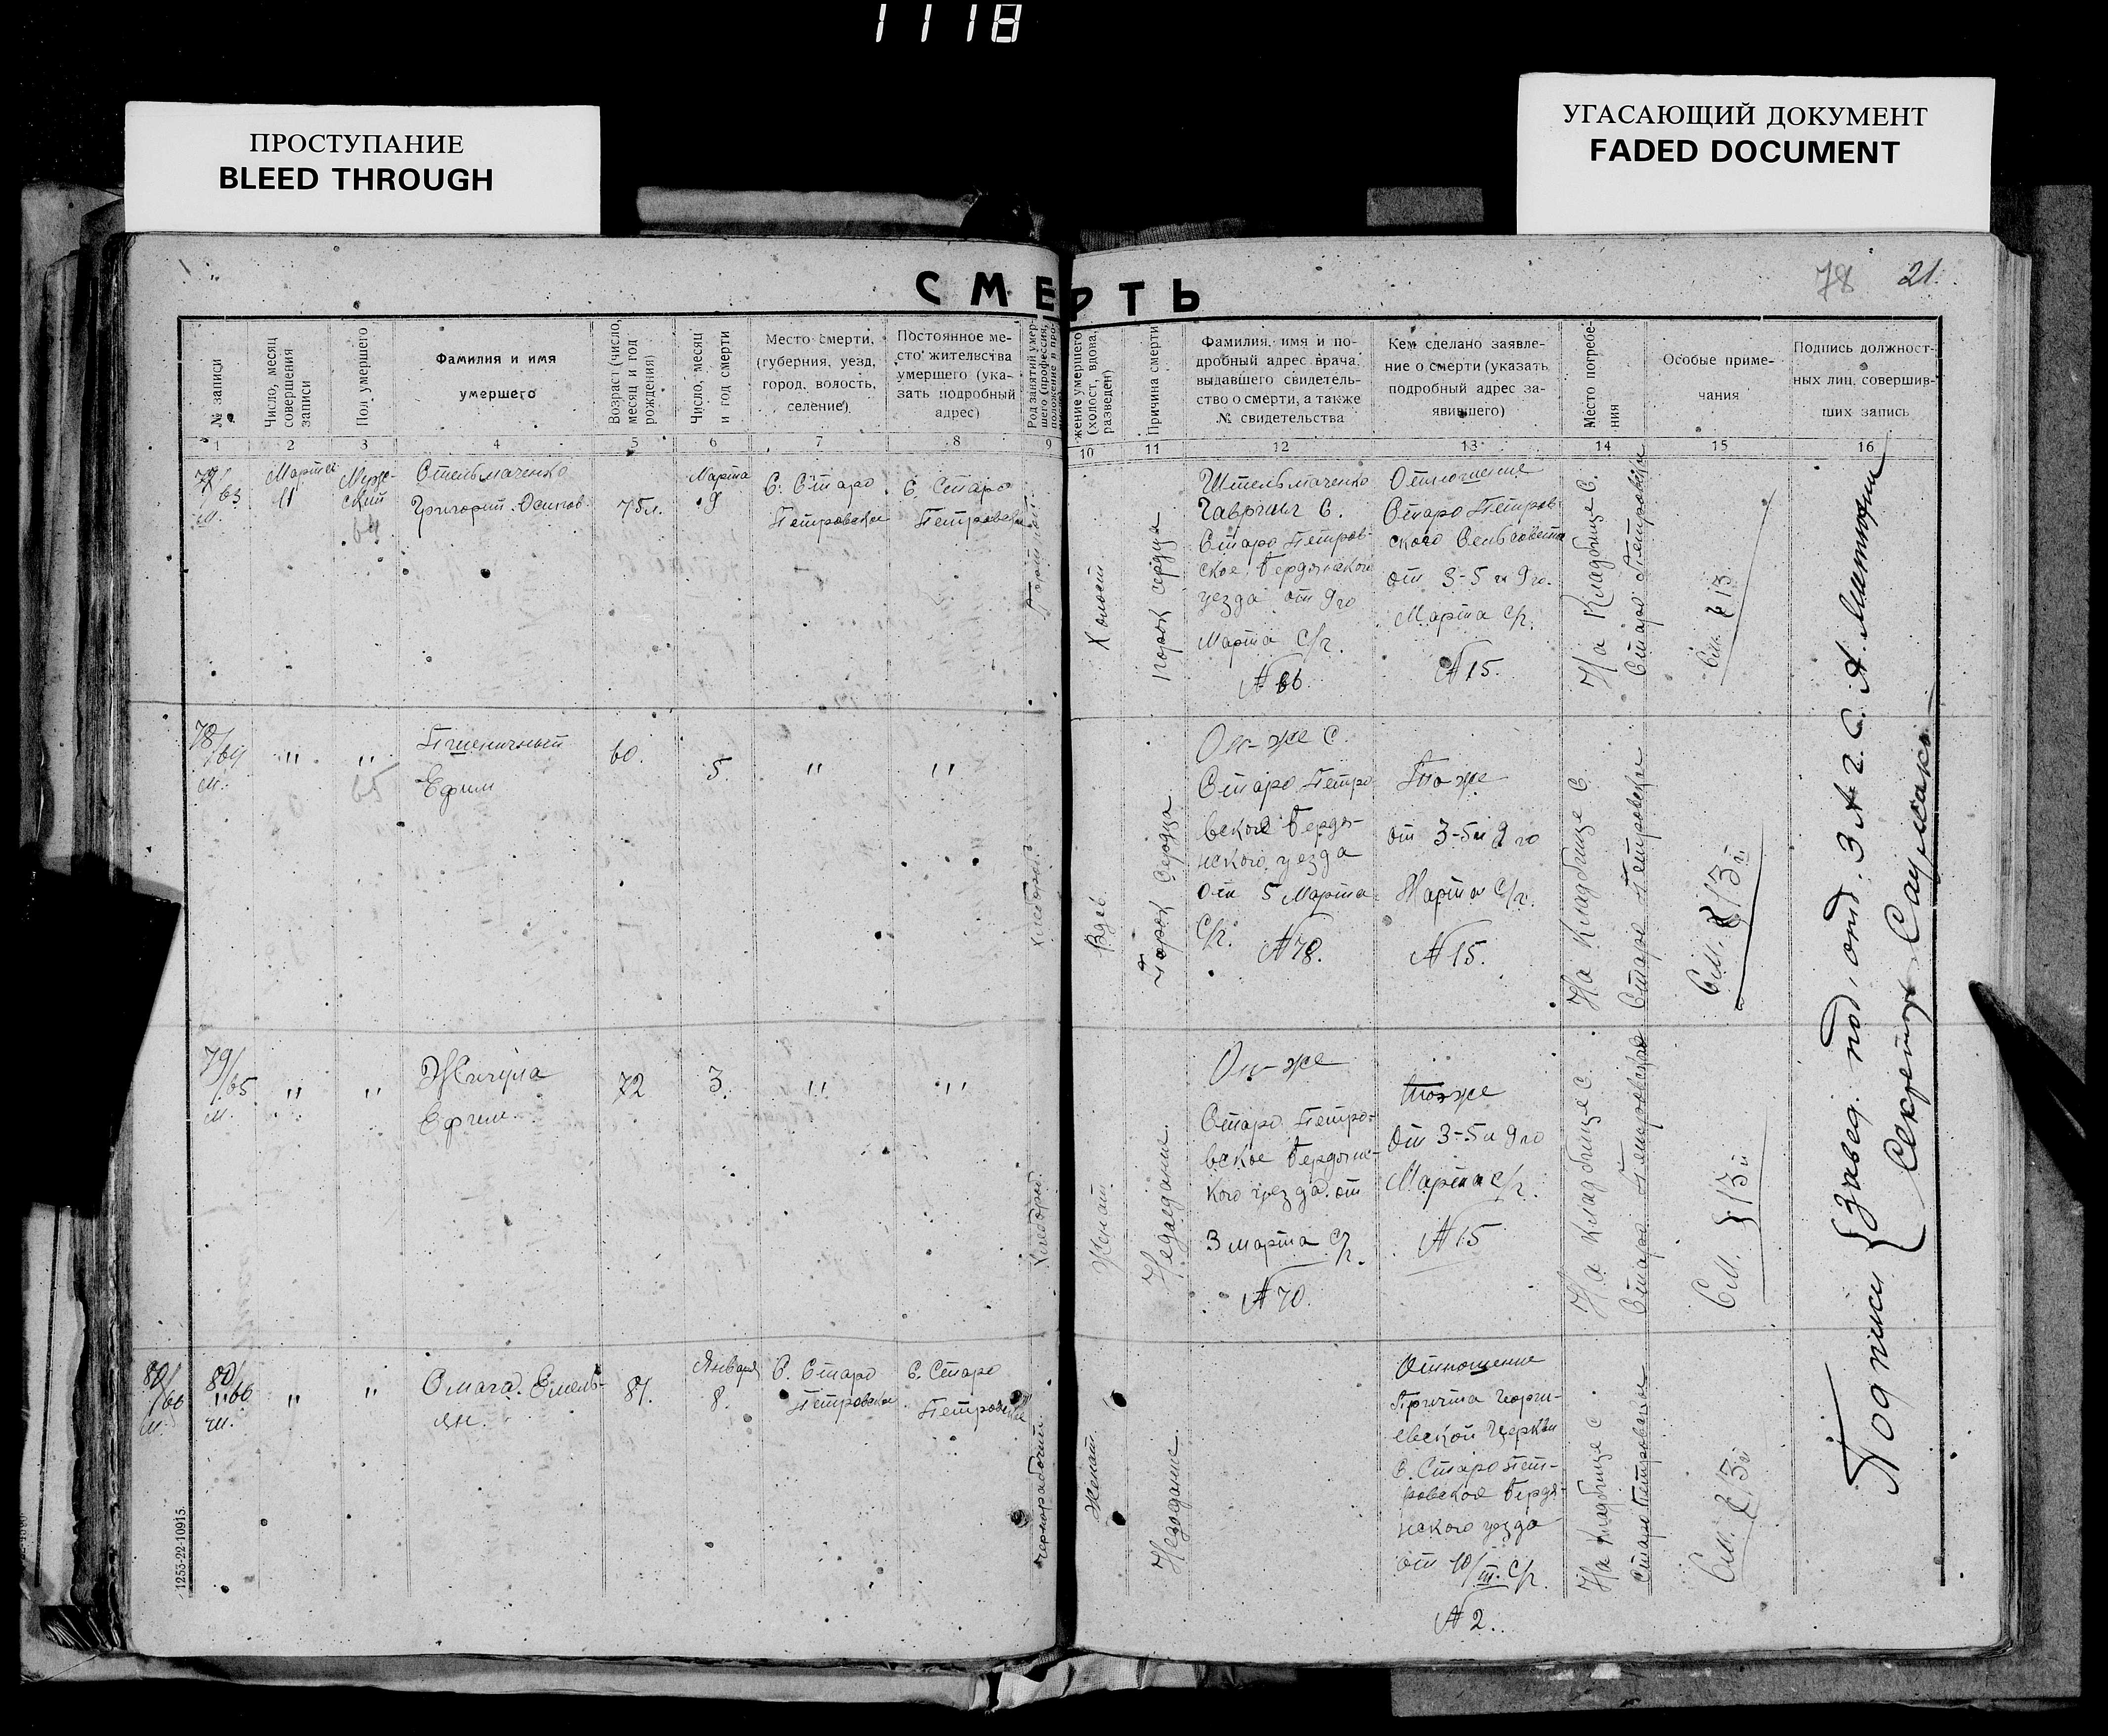 1118
ПРОСТУПАНИЕ
BLEED THROUGH
УГАСАЮЩИЙ ДОКУМЕНТ
FADED DOCUMENT
78 21.
СМЕРТЬ
№ записи
Число, месяц
совершения
записи
Пол умершего
Фамилия и имя
умершего
Возраст (число,
месяц и год
рождения)
Число, месяц
и год смерти
Место смерти,
(губерния, уезд,
город, волость,
селение)
Постоянное ме-
сто жительства
умершего (ука-
зать подробный
адрес)
Род занятий умер-
шего (профессия,
положение в про-
жение умершего
(холост, вдова,
разведен)
Причина смерти
Фамилия, имя и по-
дробный адрес врача,
выдавшего свидетель-
ство о смерти, а также
№ свидетельства
Кем сделано заявле-
ние о смерти (указать
подробный адрес за-
явившего)
Место погребе-
ния
Особые приме-
чания
Подпись должност-
ных лиц, совершив-
ших запись
1 2 3 4 5 6 7 8 9 10 11 12 13 14 15 16
77/
63
м.
Марта
11
Муж-
ский
64
Стельмаченко
Григорий Осипов.
75л.
Марта
9
С. Старо
Петровска
С. Старо
Петровска
Холост
порок сердца
Штельмаченко
Гавриил С.
Старо Петров-
ское Бердянского
уезда от 9го
Марта С/г.
№ 66.
Отношение
Старо Петров-
ского Сельсовета
от 3-5 и 9го.
Марта С/г.
№ 15.
На Кладбище С.
Старо Петровки
См. } 13.
78/
64
м.
" "
65
Пшеничный
Ефим
60.
5.
" "
хлебороб.
Вдов.
Порок Сердца
Он-же С.
Старо Петро
вское Бердя-
нского уезда
От 5 Марта
С/г. № 78.
То же
от 3-5 и 9 го
Марта С/г.
№ 15.
На Кладбище С.
Старо Петровки
См. } 13 й
79/
65.
м.
" "
Жигула
Ефим.
72
3.
" "
Хлебороб.
Женат.
Недоедание.
Он-же
Старо Петро-
вское Бердянс-
кого уезда от
3 марта С/г.
№ 70.
тоже
От 3-5 и 9 го
Марта с/г.
№ 15
На Кладбище С.
Старо Петровске
См. } 13 й
80/
66
м.
80/
66
м.
" "
Омага. Емель-
ян.
81.
Января
8.
С. Старо
Петровска
С. Старо
Петровске
чернорабочий.
Женат.
Недоедание.
Отношение
Причта Георги-
евской Церкви
С. Старо Пет-
ровское Бердя-
нского уезда
от 10/III. С/г.
№ 2.
На Кладбище С.
Старо Петровки
См. } 13 й
Подписи { Завед. под. отд. ЗАГС А.
Секретарь
1253-22-10915.